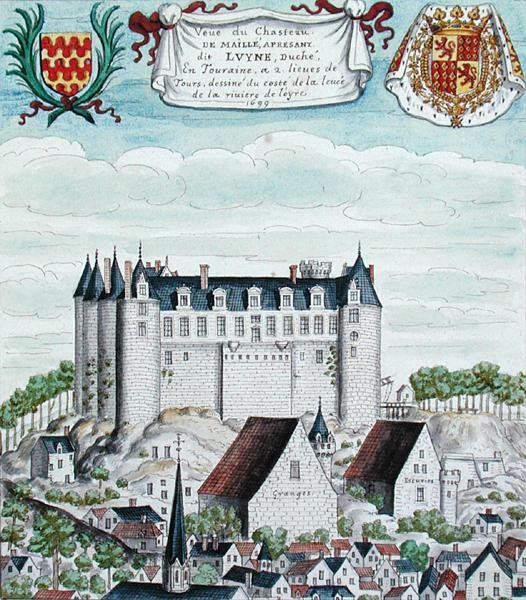 Veue du Chasteau
DE MAILLÉ, APRESANT
dit LUYNE, Duché,
En Touraine, a 2 lieues de
Tours, dessiné du costé de la leuée
de la riuiere de loyre
1699
Granges